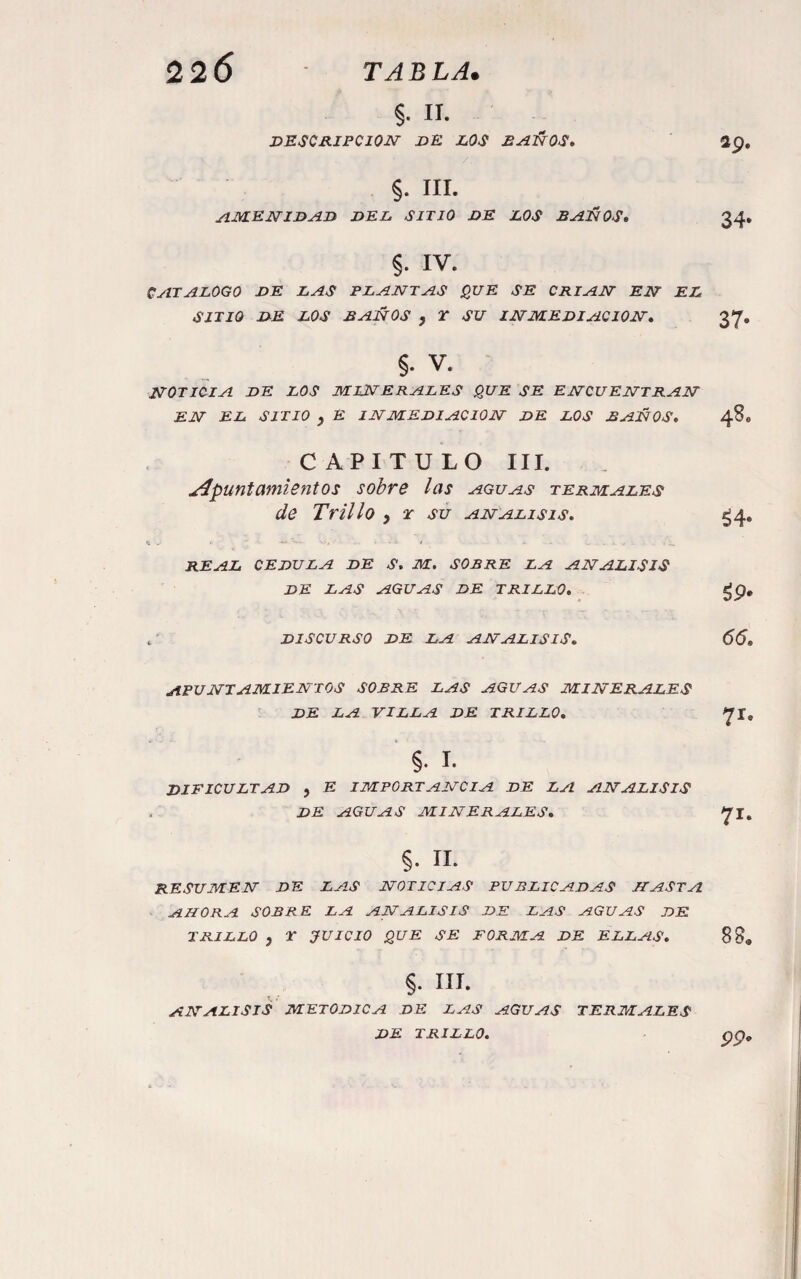 226 TABLA.
§. II.
DESCRIPCION DE LOS BAÑOS. 29.
§. III.
AMENIDAD DEL SITIO DE LOS BAÑOS. 34.
§. IV.
CATALOGO DE LAS PLANTAS QUE SE CRIAN EN EL
SITIO DE LOS BAÑOS, Y SU INMEDIACION. 37.
§. V.
NOTICIA DE LOS MINERALES QUE SE ENCUENTRAN
EN EL SITIO, E INMEDIACION DE LOS BAÑOS. 48.
CAPITULO III.
Apuntamientos sobre las AGUAS TERMALES
de Trillo, Y SU ANALISIS. 54.
REAL CEDULA DE S. M. SOBRE LA ANALISIS
DE LAS AGUAS DE TRILLO. 59.
DISCURSO DE LA ANALISIS. 66.
APUNTAMIENTOS SOBRE LAS AGUAS MINERALES
DE LA VILLA DE TRILLO. 71.
§. I.
DIFICULTAD, E IMPORTANCIA DE LA ANALISIS
DE AGUAS MINERALES. 71.
§. II.
RESUMEN DE LAS NOTICIAS PUBLICADAS HASTA
AHORA SOBRE LA ANALISIS DE LAS AGUAS DE
TRILLO, Y JUICIO QUE SE FORMA DE ELLAS. 88.
§. III.
ANALISIS METODICA DE LAS AGUAS TERMALES
DE TRILLO. 99.